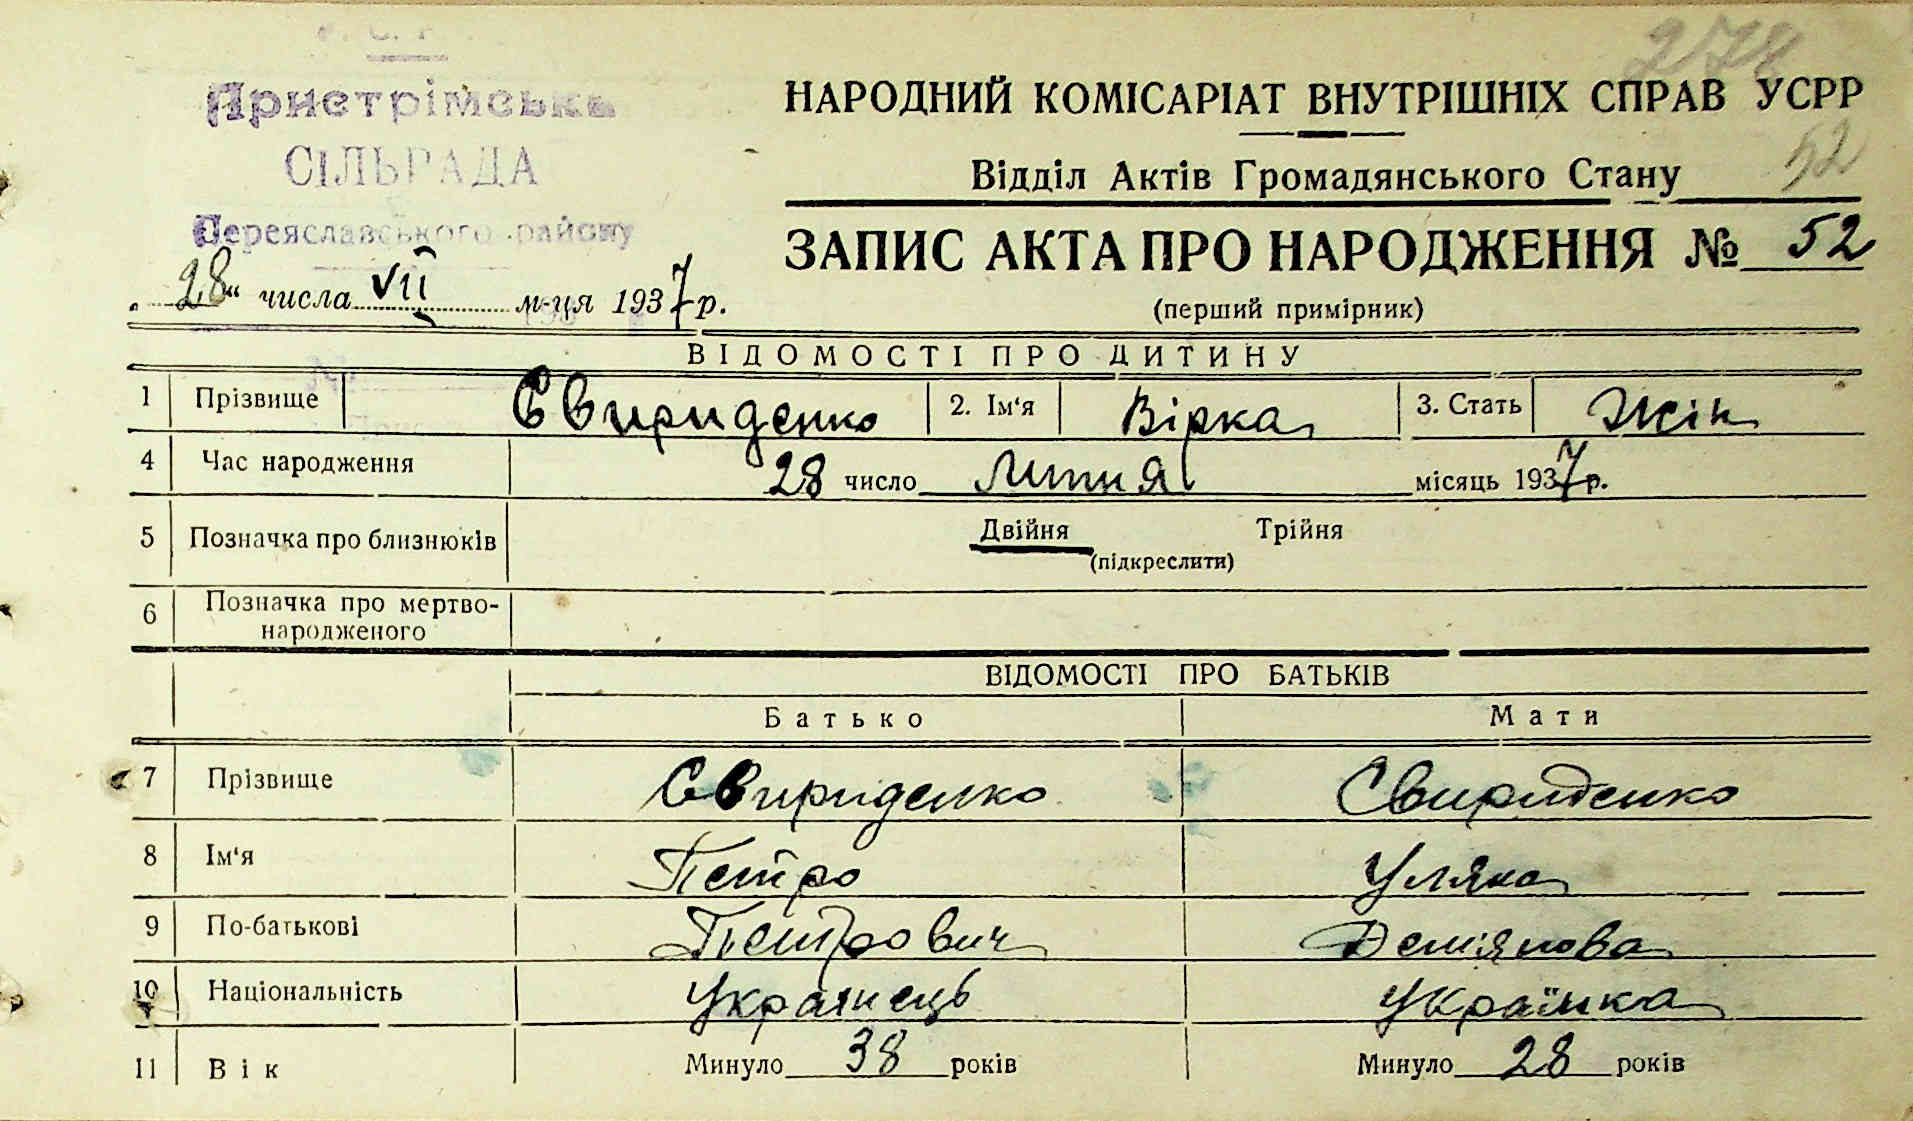 278
Пристрімська
СІЛЬРАДА
Переяславського району
НАРОДНИЙ КОМІСАРІАТ ВНУТРІШНІХ СПРАВ УСРР
52
Відділ Актів Громадянського Стану
ЗАПИС АКТА ПРО НАРОДЖЕННЯ № 52
(перший примірник)
„28“ числа VII м-ця 1937 р.
ВІДОМОСТІ ПРО ДИТИНУ
1 Прізвище Свириденко 2. Ім‘я Вірка 3. Стать Жін
4 Час народження 28 число липня місяць 1937 р.
5 Позначка про близнюків Двійня Трійня
(підкреслити)
6 Позначка про мертво-
народженого
ВІДОМОСТІ ПРО БАТЬКІВ
Батько Мати
7 Прізвище Свириденко Свириденко
8 Ім‘я Петро Уляна
9 По-батькові Петрович Демянова
10 Національність Українець Українка
11 Вік Минуло 38 років Минуло 28 років